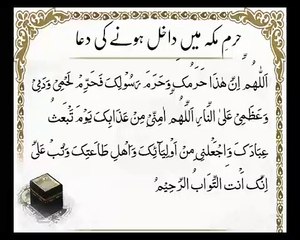 حرم مکہ میں داخل ہونے کی دعا
اَللّٰهُمَّ اِنَّ هٰذَا حَرَمُكَ وَحَرَمُ رَسُوْلِكَ فَحَرِّمْ لَحْمِيْ وَدَمِيْ
وَعَظْمِيْ عَلَى النَّارِ اَللّٰهُمَّ اٰمِنِّيْ مِنْ عَذَابِكَ يَوْمَ تَبْعَثُ
عِبَادَكَ وَاجْعَلْنِيْ مِنْ اَوْلِيَآئِكَ وَاَهْلِ طَاعَتِكَ وَتُبْ عَلَيَّ
اِنَّكَ اَنْتَ التَّوَّابُ الرَّحِيْمُ